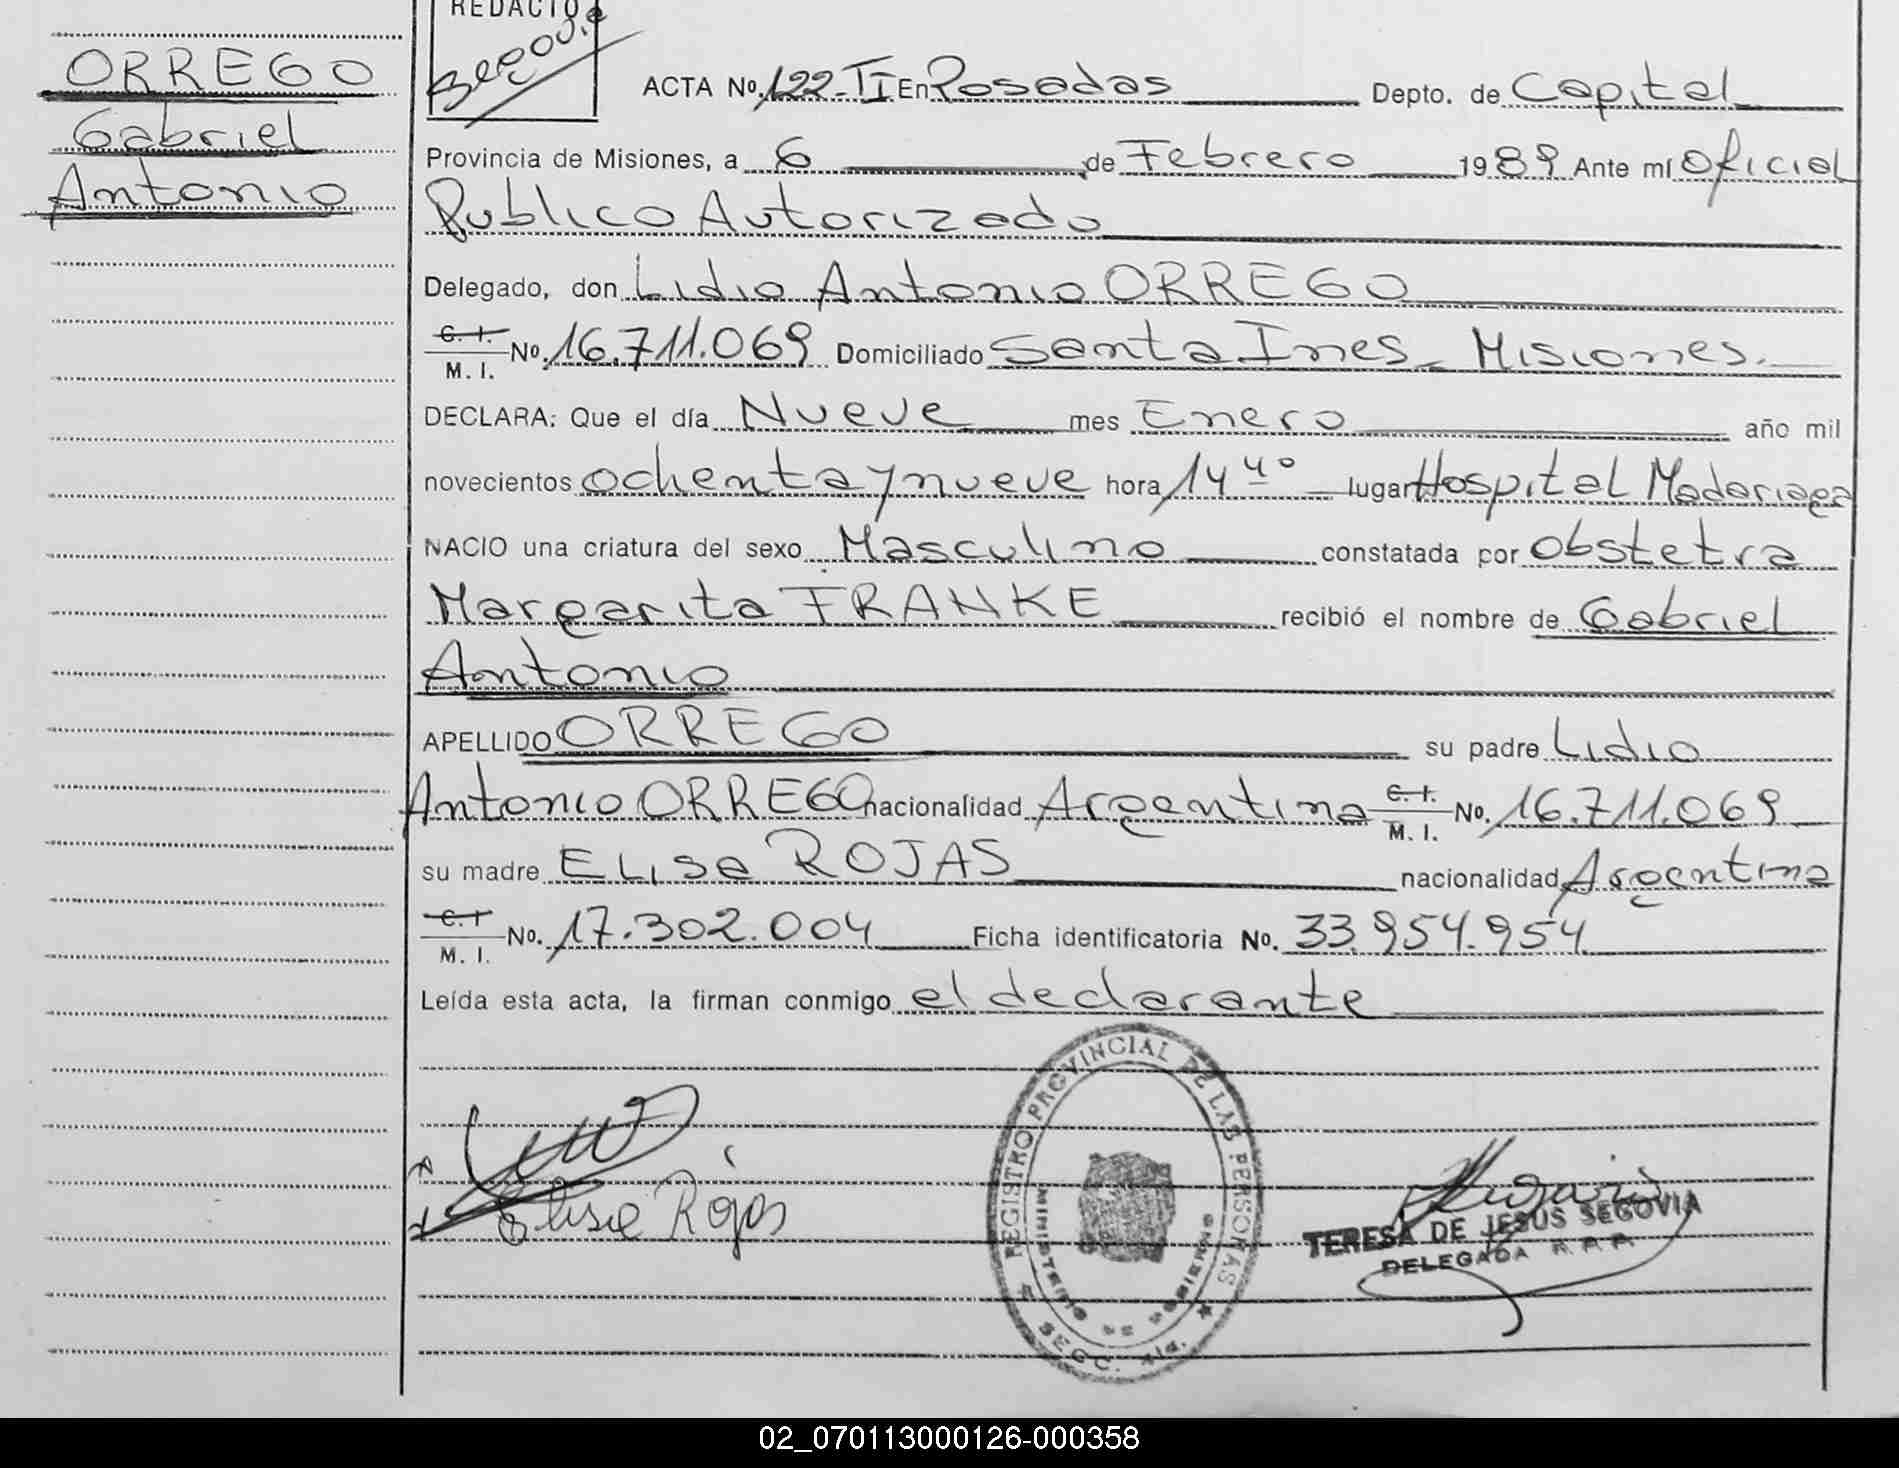 ORREGO
Gabriel
Antonio
REDACTO
ACTA No. 122-II En Posadas Depto. de Capital
Provincia de Misiones, a 6 de Febrero 1989 Ante mí Oficial
Publico Autorizado
Delegado, don Lidio Antonio ORREGO
C. I.
M. I. No. 16.711.069 Domiciliado Santa Ines - Misiones.
DECLARA: Que el día Nueve mes Enero año mil
novecientos ochenta y nueve hora 14 40 lugar Hospital Madariaga
NACIO una criatura del sexo Masculino constatada por Obstetra
Margarita FRANKE recibió el nombre de Gabriel
Antonio
APELLIDO ORREGO su padre Lidio
Antonio ORREGO nacionalidad Argentina C. I. M. I. No. 16.711.069
su madre ELisa ROJAS nacionalidad Argentina
C. I
M. I. No. 17.302.004 Ficha identificatoria No. 33.954.954
Leída esta acta, la firman conmigo el declarante
Elisa Rojas
REGISTRO PROVINCIAL DE LAS PERSONAS
MINISTERIO DE GOBIERNO
TERESA DE JESUS SEGOVIA
DELEGADA
02_070113000126-000358